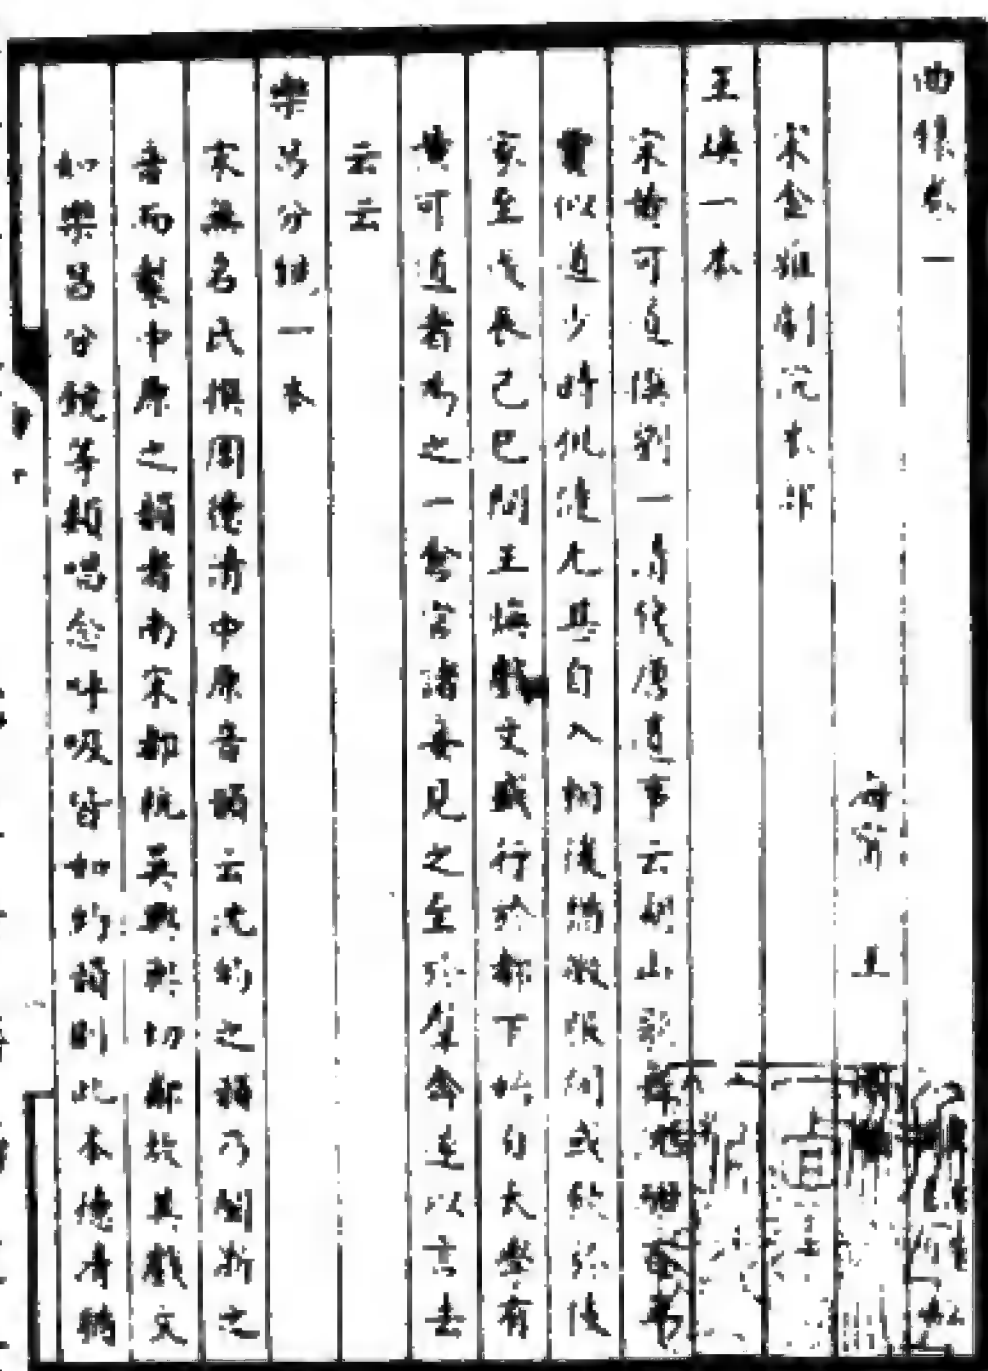 曲錄卷一
海甯 王
宋金雜劇院本部
王煥一本
宋黃可道撰劉一清錢唐遺事云湖山歌舞
賈似道少時佻達尤甚自入相後猶微服間或飲於伎
家至戊辰己巳間王煥戲文盛行於都下始自太學有
黃可道者為之一倉官諸妾見之至於羣奔遂以言去
云云
樂昌分鏡一本
宋無名氏撰周德清中原音韻云沈約之韻乃閩浙之
音而製中原之韻者南宋都杭吳興與切鄰故其戲文
如樂昌分鏡等類唱念呼吸皆如約韻則此本德清猶